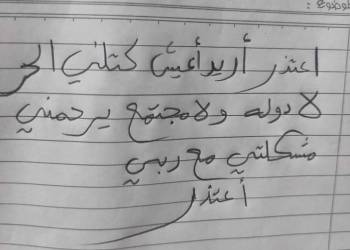 الموضوع :
اعتذر أريد أعيش كتلني الحر
لا دوله ولا مجتمع يرحمني
مشكلتي مع ربي
أعتذر